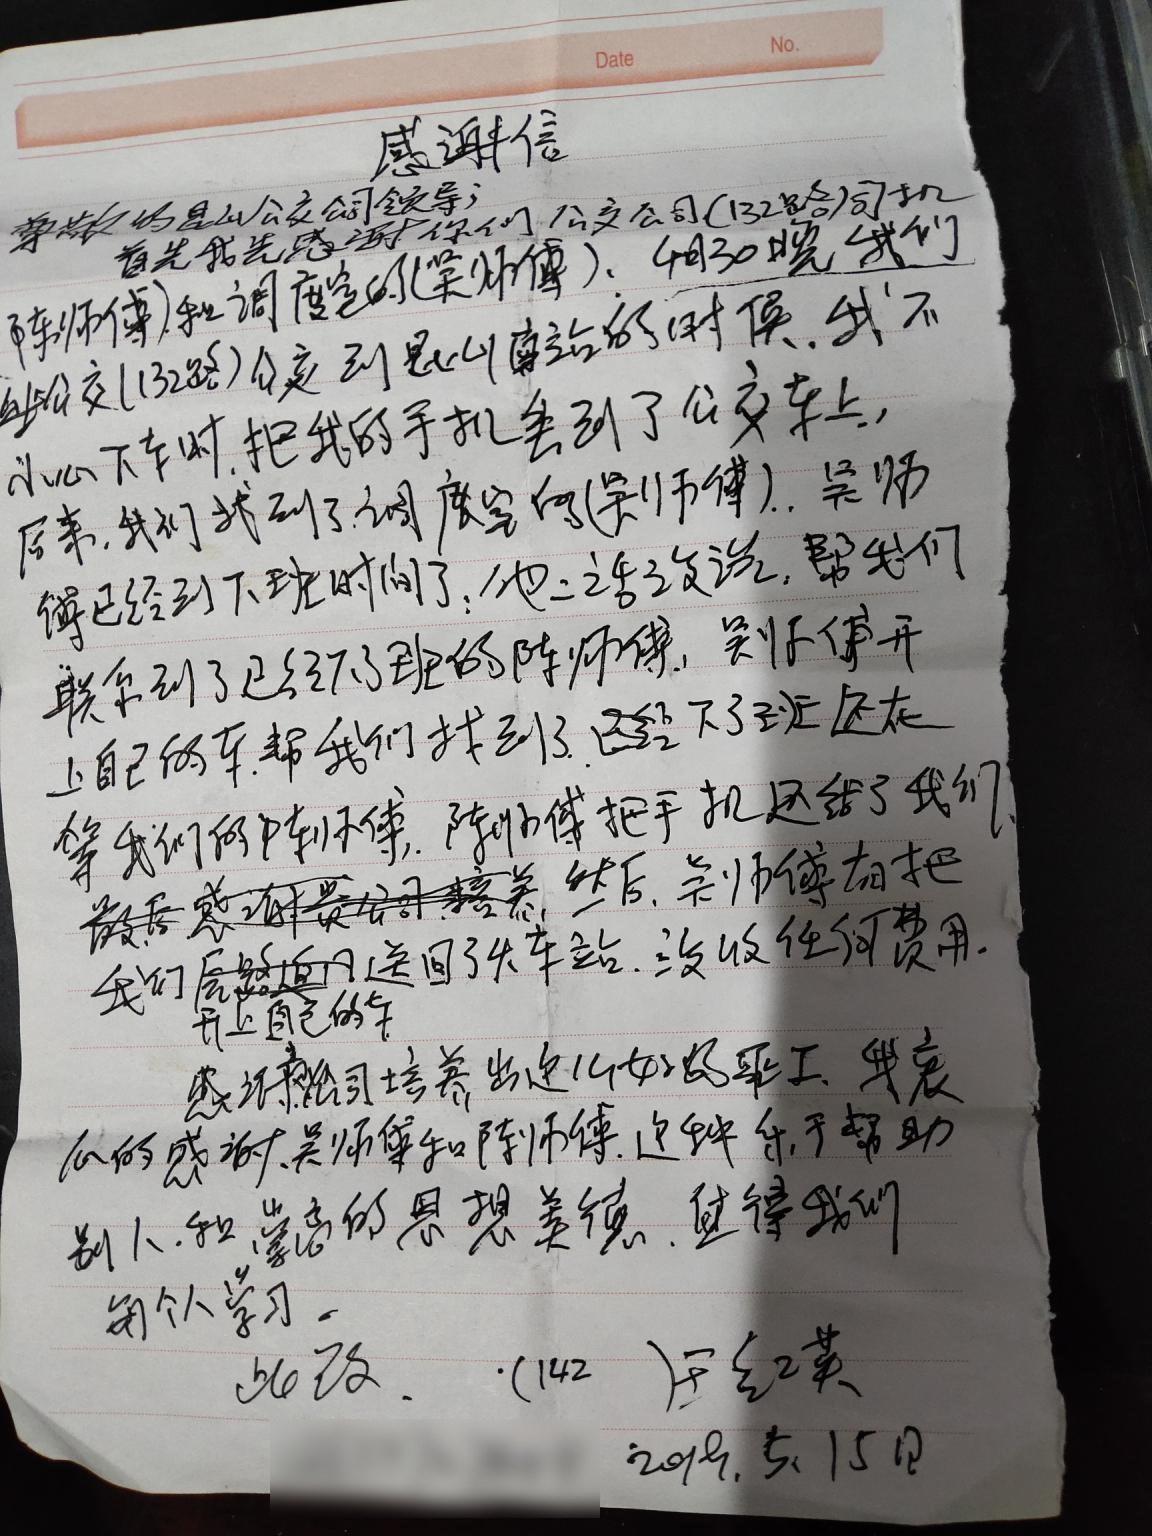 Date No.
感谢信
尊敬的昆山公交公司领导；
首先我先感谢你们公交公司(132路)司机
陈师傅)和调度室的(吴师傅)、4月30日晚我们
坐公交(132路)公交到昆山南站的时候、我不
小心下车时、把我的手机丢到了公交车上，
后来，我们找到了调度室的(吴师傅)．吴师
傅已经到下班时间了；他二话没说，帮我们
联系到了已经下了班的陈师傅，吴师傅开
上自己的车、帮我们找到了、已经下了班还在
等我们的陈师傅，陈师傅把手机还给了我们、
最后感谢贵公司培养，然后，吴师傅有把
我们送回了火车站、没收任何费用．
开上自己的车
感谢贵公司培养出这么好的职工、我衷
心的感谢、吴师傅和陈师傅、这种乐于帮助
别人、和崇高的思想美德、值得我们
每个人学习．
此致． (142 )王红英
2019.5.15日